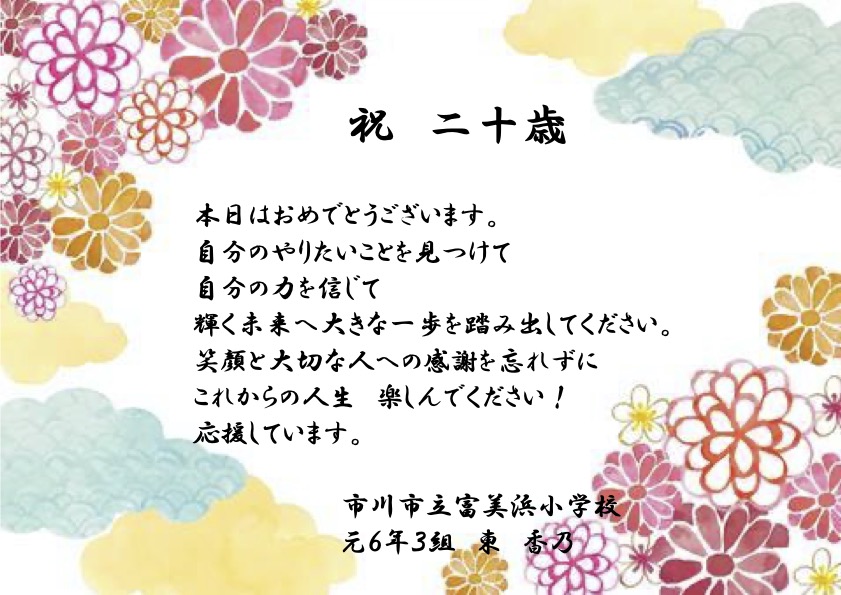 祝　二十歳
本日はおめでとうございます。
自分のやりたいことを見つけて
自分の力を信じて
輝く未来へ大きな一歩を踏み出してください。
笑顔と大切な人への感謝を忘れずに
これからの人生　楽しんでください！
応援しています。
市川市立富美浜小学校
元6年3組　東　香乃